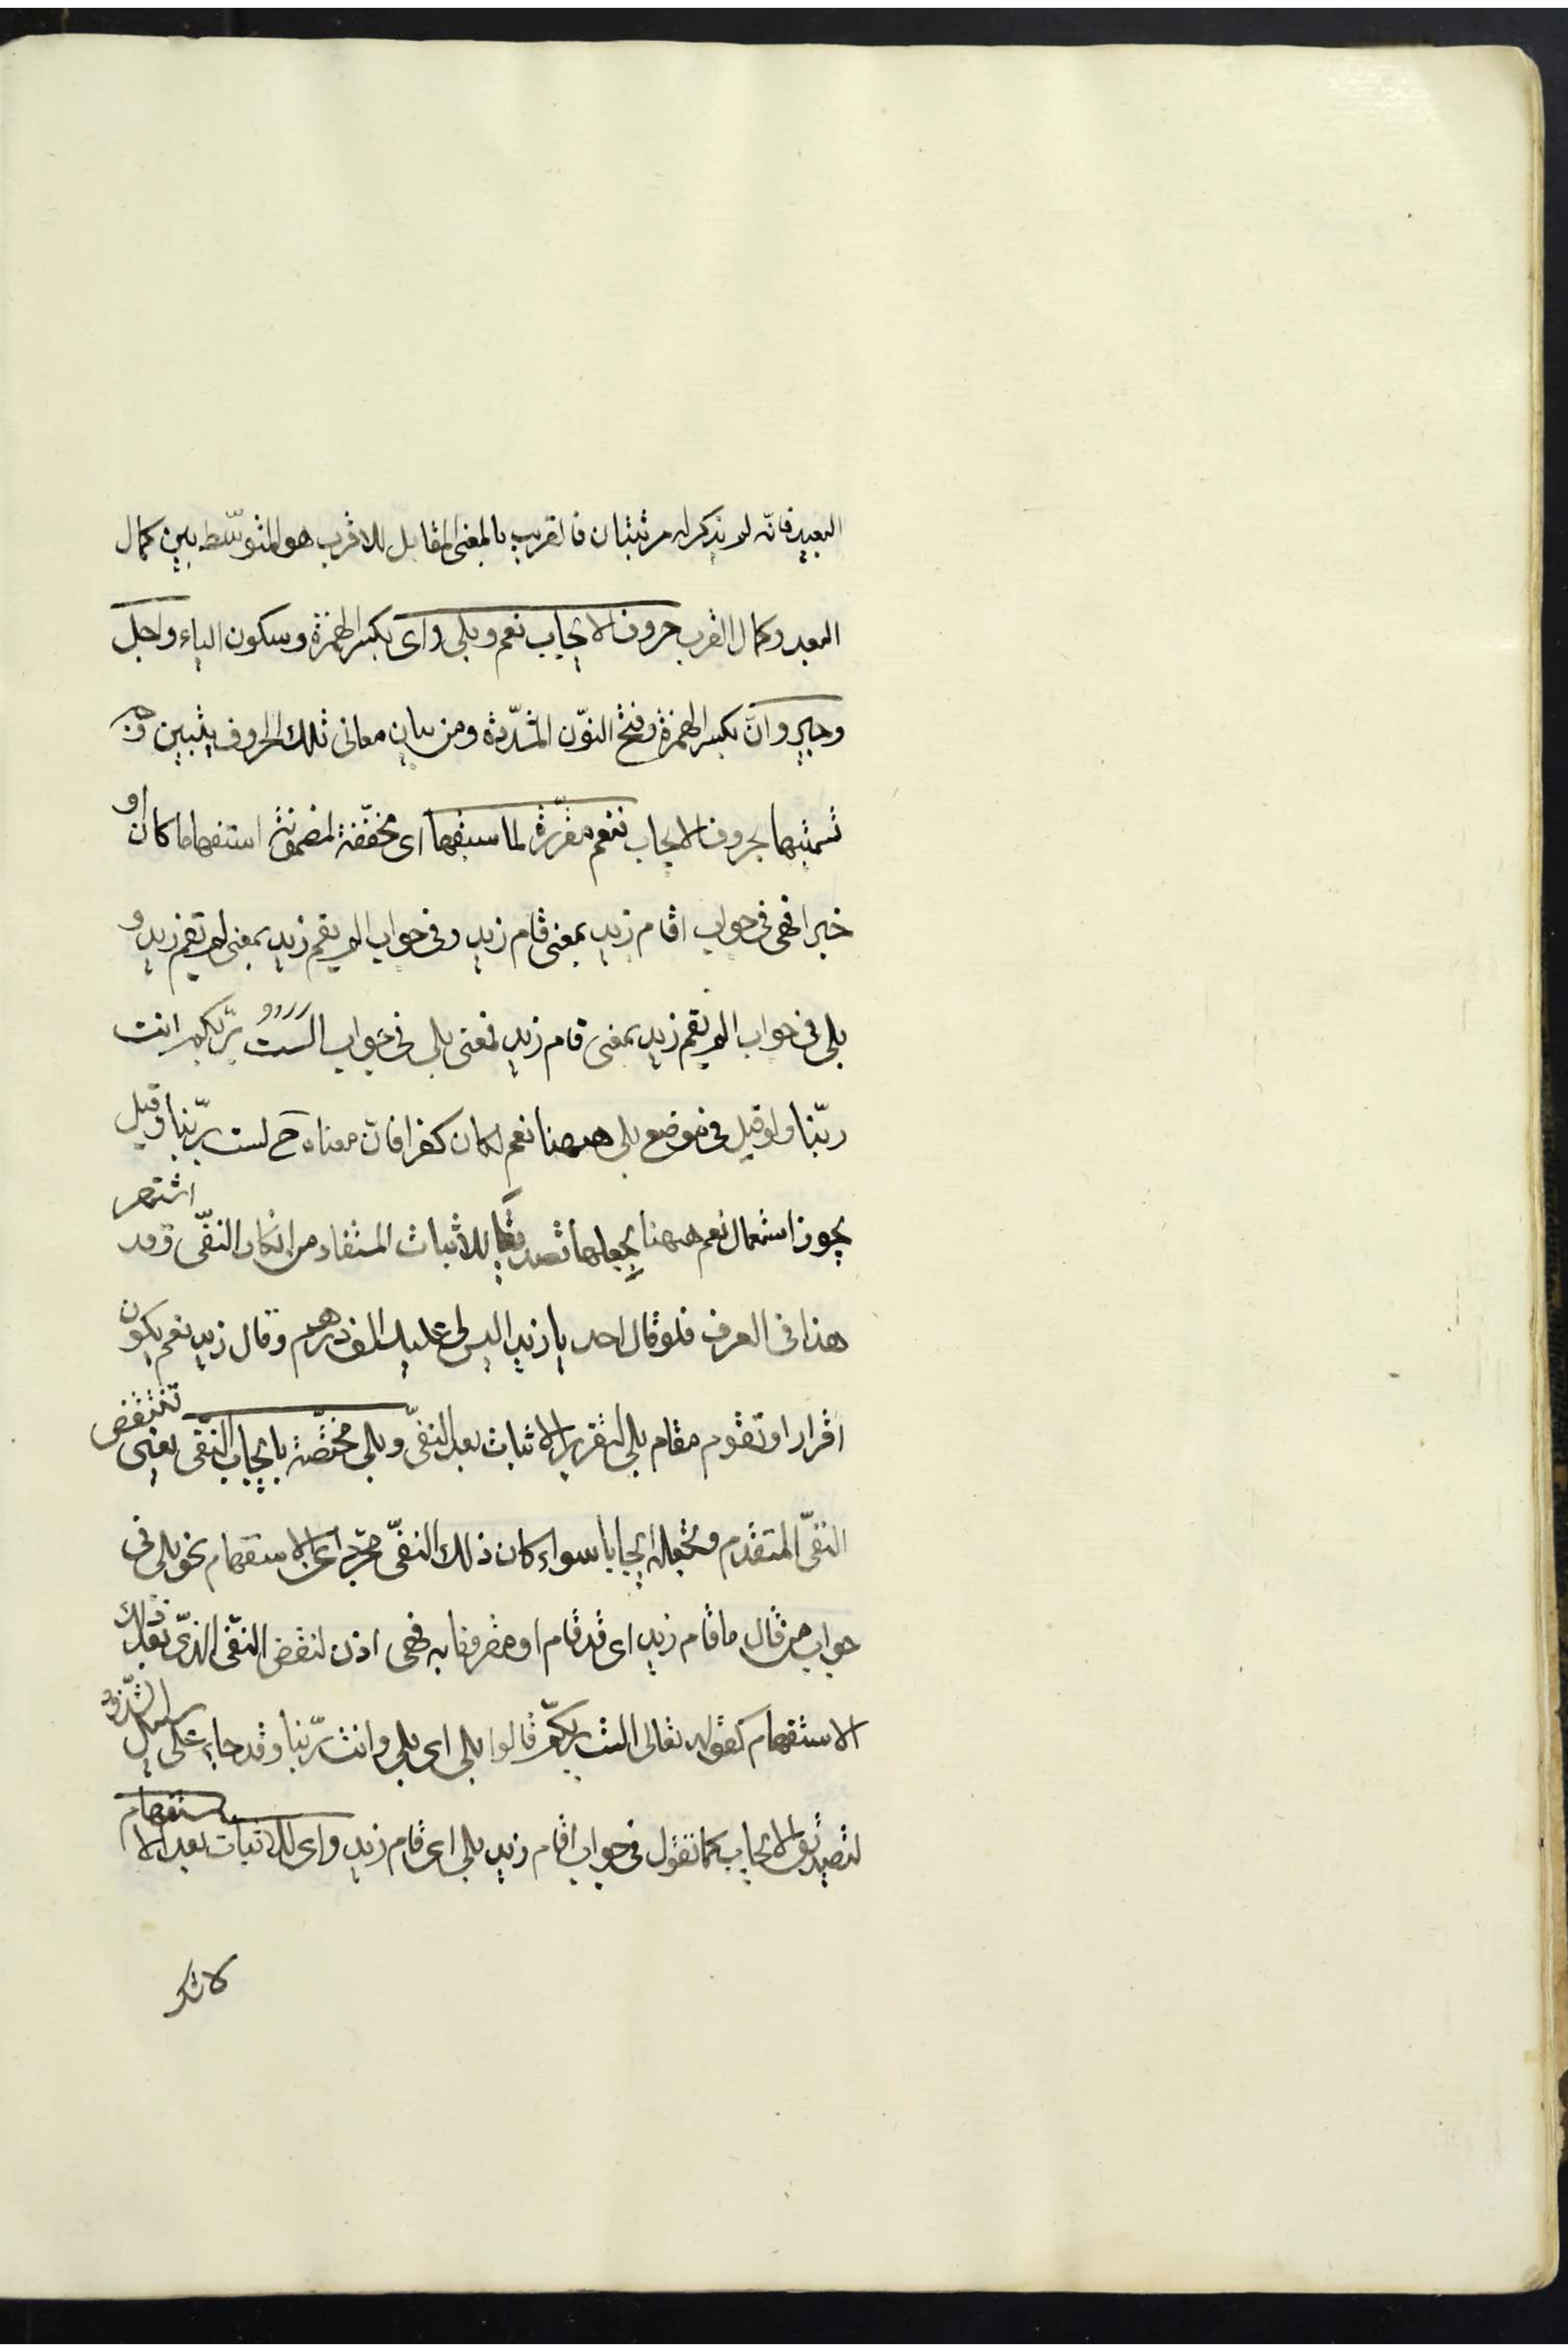 البعيد فانه لم يذكر له مرتبتان فالقريب بالمعنى المقابل للاقرب هو المتوسّط بين كمال
البعد وكمال القرب حروف الايجاب نعم وبلى واى بكسر الهمزة وسكون الياء واجل
وجير وانّ بكسر الهمزة وفتح النّون المشدّدة ومن بيان معانى تلك الحروف يتبين وجه
تسميتها بحروف الايجاب فنعم مقرّرة لما سبقها اى محقّقة لمضمونه استفهاما كان او
خبرا فهى فى جواب اقام زيد بمعنى قام زيد وفى جواب الم يقم زيد بمعنى لم يقم زيد و
بلى فى جواب الم يقم زيد بمعنى قام زيد فمعنى بلى فى جواب الست بربّكم انت
ربّنا ولو قيل فى موضع بلى ههنا نعم لكان كفرا فانّ معناه ح لست بربّنا وقيل
يجوز استعمال نعم ههنا بجعلها تصديقا للاثبات المستفاد من انكار النفّى وقد اشتهر
هذا فى العرف فلو قال احد يا زيد اليس لى عليك الف درهم وقال زيد نعم يكون
اقرارا وتقوم مقام بلى لتقرير الاثبات بعد النفىّ وبلى مختصّة بايجاب النّفى يعنى تنتقض
النفّى المتقدم وتجعله ايجابا سواء كان ذلك النفّى مجرّدا عن الاستفهام نحو بلى فى
جواب من قال ما قام زيد اى قد قام او مقرونا به فهى اذن لنقض النفى الذّى بعد ذلك
الاستفهام كقوله تعالى الست بربّكم قالوا بلى اى بلى وانت ربّنا وقد جاء على سبيل الشّذوذ
لتصديق الايجاب كما تقول فى جواب اقام زيد بلى اى قام زيد واى للاثبات بعد الاستفهام